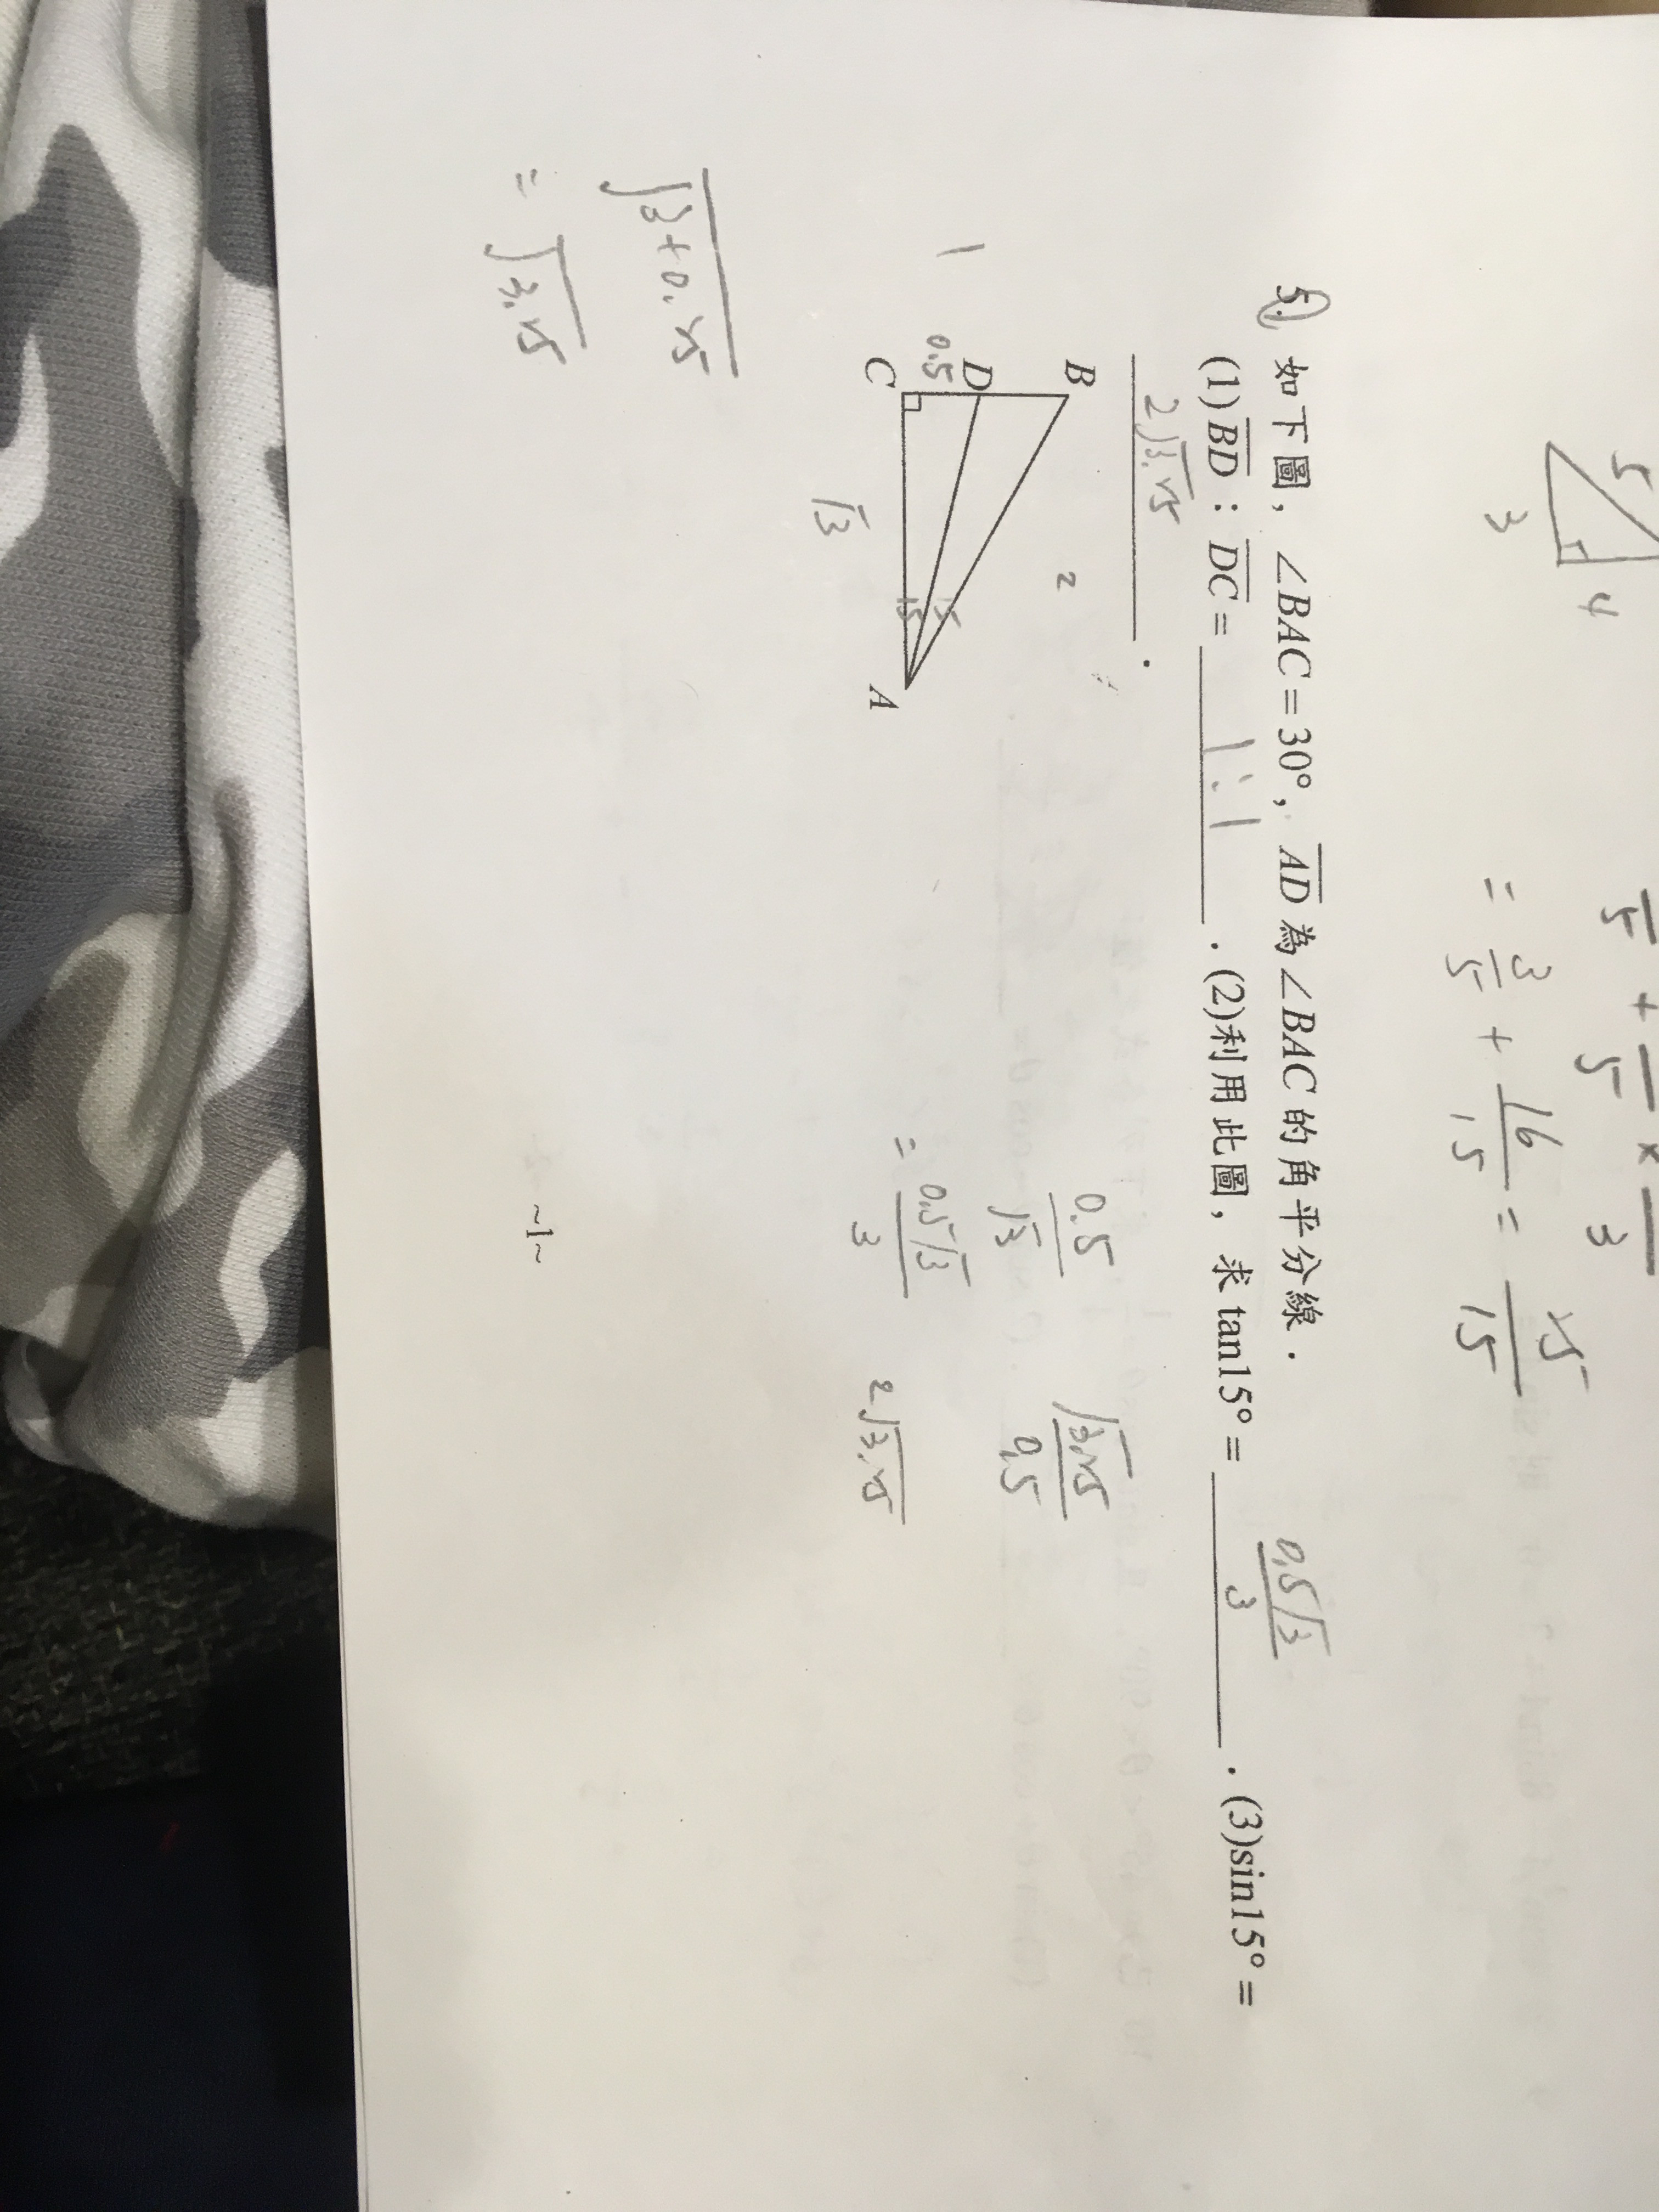 5
3
4
5 + 5 × 3
= 3/5 + 16/15 = 25/15
5. 如下圖，∠BAC=30°，AD為∠BAC的角平分線．
(1)BD：DC= 1:1 ．(2)利用此圖，求tan15°= 0.5√3/3 ．(3)sin15°=
2√3.25 ．
B
D
C
A
1
0.5
2
√3
15
15
0.5/√3
= 0.5√3/3
√3.25/0.5
2√3.25
√3+0.25
= √3.25
~1~